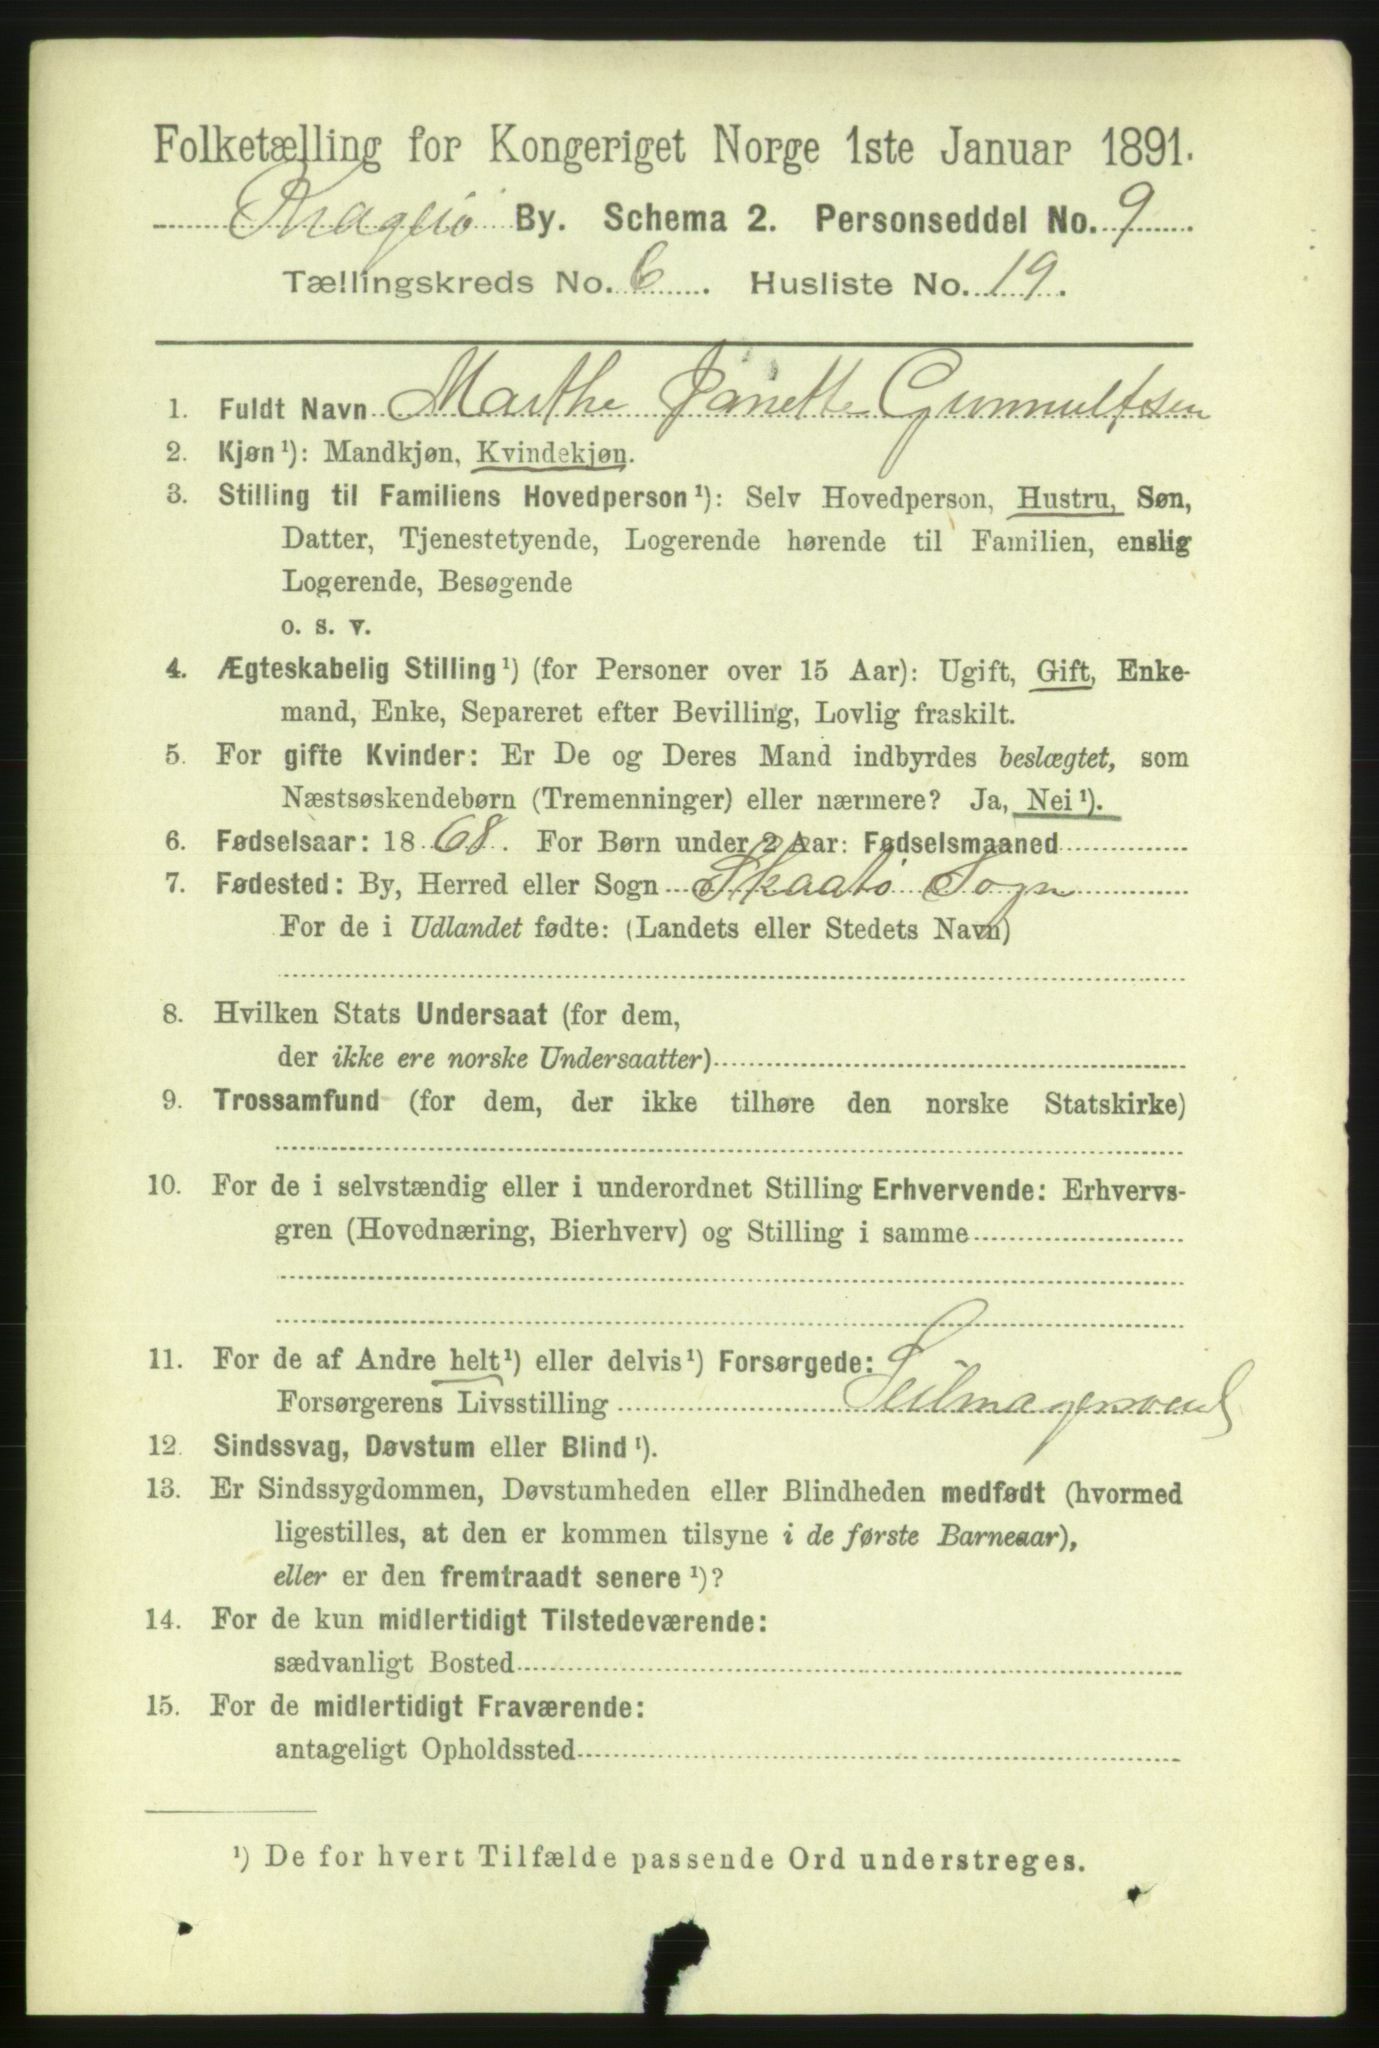 Folketælling for Kongeriget Norge 1ste Januar 1891.
Kragerø By. Schema 2. Personseddel No. 9
Tællingskreds No. 6. Husliste No. 19.
1. Fuldt Navn Marthe Janette Gunnulfsen
2. Kjøn¹): Mandkjøn, Kvindekjøn.
3. Stilling til Familiens Hovedperson¹): Selv Hovedperson, Hustru, Søn,
Datter, Tjenestetyende, Logerende hørende til Familien, enslig
Logerende, Besøgende
o. s. v.
4. Ægteskabelig Stilling¹) (for Personer over 15 Aar): Ugift, Gift, Enke-
mand, Enke, Separeret efter Bevilling, Lovlig fraskilt.
5. For gifte Kvinder: Er De og Deres Mand indbyrdes beslægtet, som
Næstsøskendebørn (Tremenninger) eller nærmere? Ja, Nei¹).
6. Fødselsaar: 1868. For Børn under 2 Aar: Fødselsmaaned
7. Fødested: By, Herred eller Sogn Skaatø Sogn
For de i Udlandet fødte: (Landets eller Stedets Navn)
8. Hvilken Stats Undersaat (for dem,
der ikke ere norske Undersaatter)
9. Trossamfund (for dem, der ikke tilhøre den norske Statskirke)
10. For de i selvstændig eller i underordnet Stilling Erhvervende: Erhvervs-
gren (Hovednæring, Bierhverv) og Stilling i samme
11. For de af Andre helt¹) eller delvis¹) Forsørgede:
Forsørgerens Livsstilling Seilmagersvend
12. Sindssvag, Døvstum eller Blind¹).
13. Er Sindssygdommen, Døvstumheden eller Blindheden medfødt (hvormed
ligestilles, at den er kommen tilsyne i de første Barneaar),
eller er den fremtraadt senere¹)?
14. For de kun midlertidigt Tilstedeværende:
sædvanligt Bosted
15. For de midlertidigt Fraværende:
antageligt Opholdssted
¹) De for hvert Tilfælde passende Ord understreges.